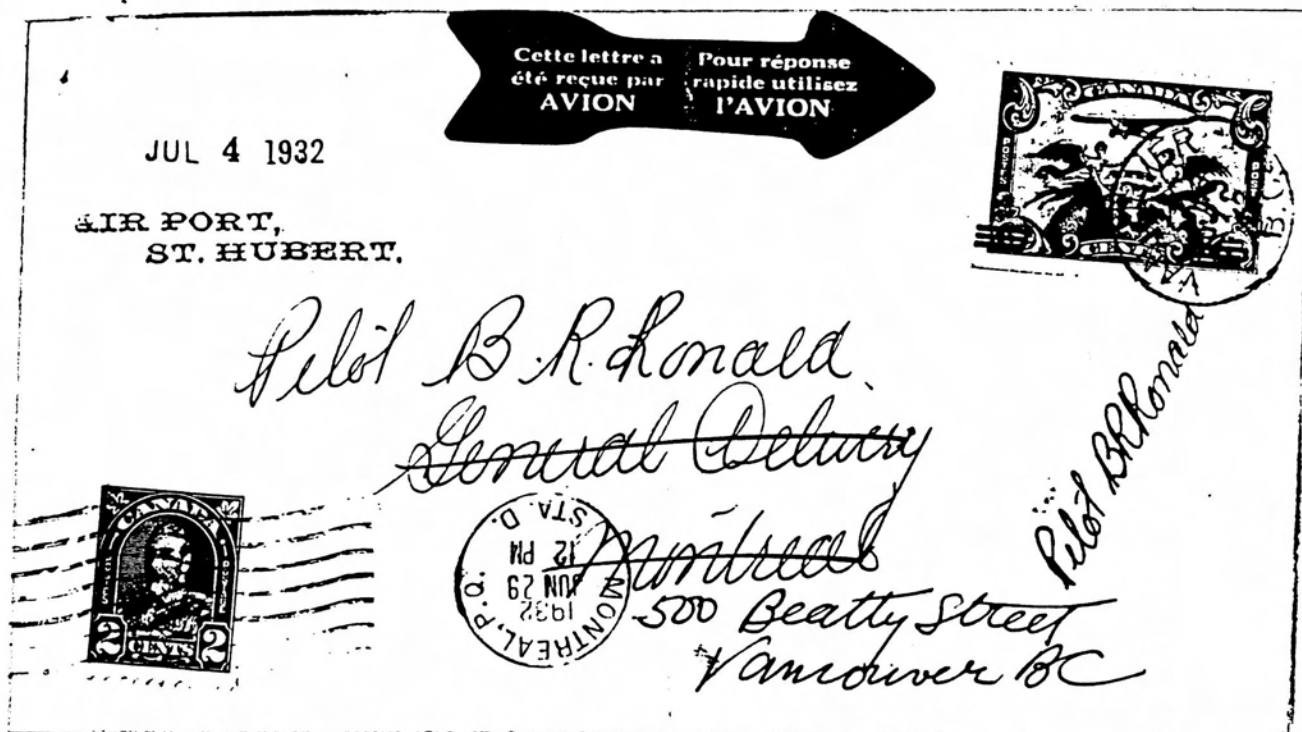 Cette lettre a
été reçue par
AVION
Pour réponse
rapide utilisez
l'AVION
JUL 4 1932
AIR PORT,
ST. HUBERT.
CANADA
POSTES
POST
Pilot B. R. Ronald
General Delivery
Montreal
500 Beatty Street
Vancouver BC
Pilot BRRonald
CANADA
2 CENTS 2
MONTREAL, P.Q.
1932
JUN 29
12 PM
STA. D.